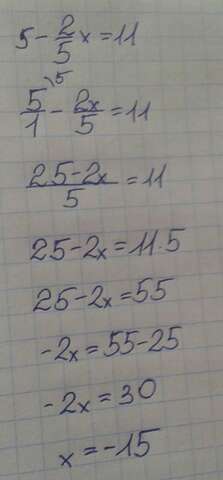 5 - 2/5 x = 11
5/1 \5 - 2x/5 = 11
25-2x/5 = 11
25-2x = 11·5
25-2x = 55
-2x = 55-25
-2x = 30
x = -15